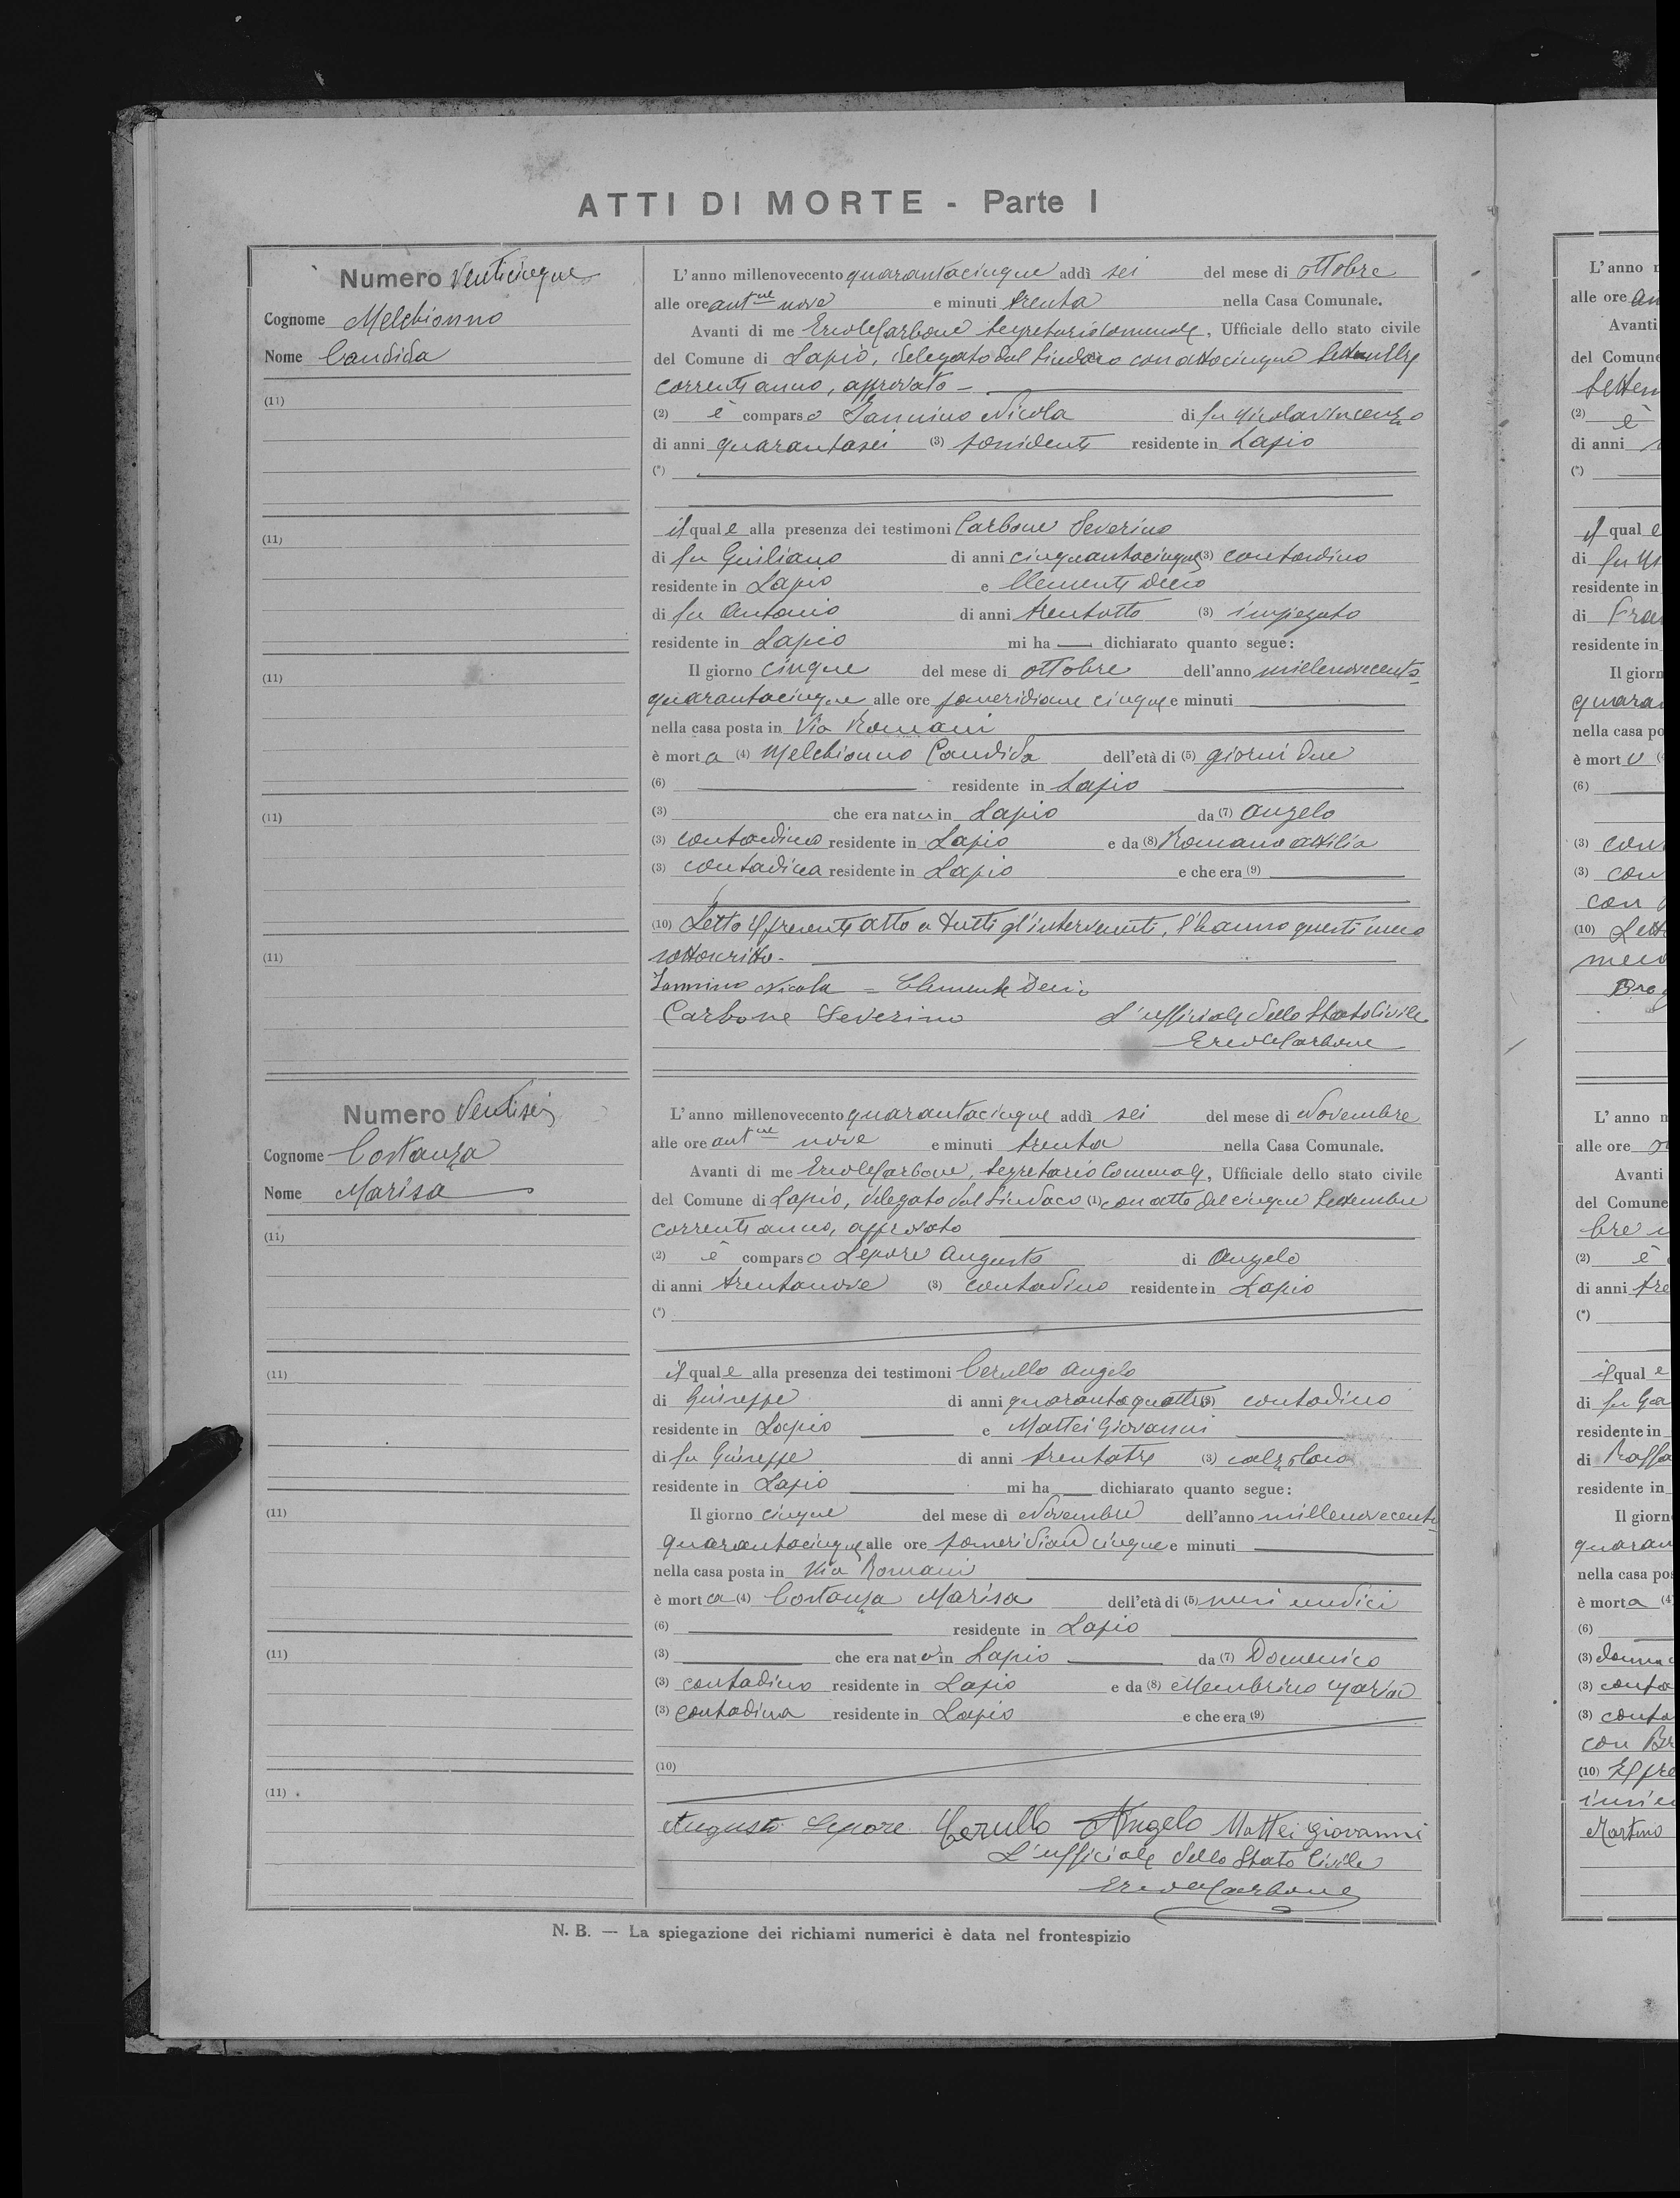 ATTI DI MORTE - Parte I
Numero Venticinque
Cognome Melchionno
Nome Candida
(11)
(11)
(11)
(11)
(11)
L'anno millenovecento quarantacinque addì sei del mese di ottobre
alle ore antne nove e minuti trenta nella Casa Comunale.
Avanti di me Ercole Carbone Segretario Comunale, Ufficiale dello stato civile
del Comune di Lapio, delegato dal Sindaco con atto cinque Settembre
corrente anno, approvato
(2) è comparso Iannino Nicola di fu Nicolavincenzo
di anni quarantasei (3) possidente residente in Lapio
(*)
il quale alla presenza dei testimoni Carbone Severino
di fu Giuliano di anni cinquantacinque (3) contadino
residente in Lapio e Clemente Decio
di fu Antonio di anni trentotto (3) impiegato
residente in Lapio mi ha dichiarato quanto segue:
Il giorno cinque del mese di ottobre dell'anno millenovecento
quarantacinque alle ore pomeridiane cinque e minuti
nella casa posta in Via Romani
è morta (4) Melchionno Candida dell'età di (5) giorni due
(6) residente in Lapio
(3) che era nata in Lapio da (7) Angelo
(3) contadino residente in Lapio e da (8) Romano Attilia
(3) contadina residente in Lapio e che era (9)
(10) Letto il presente atto a tutti gl'intervenuti, l'hanno questi meco
sottoscritto.
Iannino Nicola = Clemente Decio
Carbone Severino L'ufficiale dello Stato Civile
Ercole Carbone
Numero Ventisei
Cognome Costanza
Nome Marisa
(11)
(11)
(11)
(11)
(11)
L'anno millenovecento quarantacinque addì sei del mese di Novembre
alle ore antne nove e minuti trenta nella Casa Comunale.
Avanti di me Ercole Carbone, Segretario Comunale, Ufficiale dello stato civile
del Comune di Lapio, delegato dal Sindaco (1) con atto del cinque Settembre
corrente anno, approvato
(2) è comparso Lepore Augusto di Angelo
di anni trentanove (3) contadino residente in Lapio
(*)
il quale alla presenza dei testimoni Cerullo Angelo
di Giuseppe di anni quarantaquattro (3) contadino
residente in Lapio e Mattei Giovanni
di fu Giuseppe di anni trentatre (3) calzolaio
residente in Lapio mi ha dichiarato quanto segue:
Il giorno cinque del mese di Novembre dell'anno millenovecento
quarantacinque alle ore pomeridiane cinque e minuti
nella casa posta in Via Romani
è morta (4) Costanza Marisa dell'età di (5) mesi undici
(6) residente in Lapio
(3) che era nata in Lapio da (7) Domenico
(3) contadino residente in Lapio e da (8) Membrino Maria
(3) contadina residente in Lapio e che era (9)
(10)
Augusto Lepore Cerullo Angelo Mattei Giovanni
L'ufficiale dello Stato Civile
Ercole Carbone
N. B. — La spiegazione dei richiami numerici è data nel frontespizio
L'anno
alle ore
Avanti
del Comune
(2) è
di anni
(*)
il quale
di fu
residente in
di
residente in
Il giorn
quaran
nella casa po
è morto
(6)
(3) con
(3) con
con
(10) Lett
meco
L'anno
alle ore
Avanti
del Comune
bre
(2) è
di anni tre
(*)
il quale
di fu
residente in
di Raffa
residente in
Il giorn
quaran
nella casa pos
è morta (4)
(6)
(3) donna
(3) conta
(3) conta
con Br
(10)
Martino